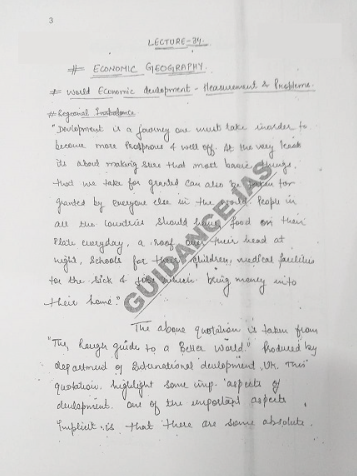 3
LECTURE-34.
# ECONOMIC GEOGRAPHY.
* World Economic development - Measurement & Problems.
# Regional Imbalance
"Development is a journey one must take inorder to
become more prosperous & well off. At the very least
its about making sure that most basic things,
that we take for granted can also be taken for
granted by everyone else in the world. People in
all the countries should have food on their
plate everyday, a roof over their head at
night, schools for their children, medical facilities
for the sick & jobs which bring money into
their home."
The above quotation is taken from
"The Rough guide to a Better World." Produced by
department of International development, UK. This
quotation highlight some imp. aspects of
development. one of the important aspects
implicit is that there are some absolute
GUIDANCE IAS